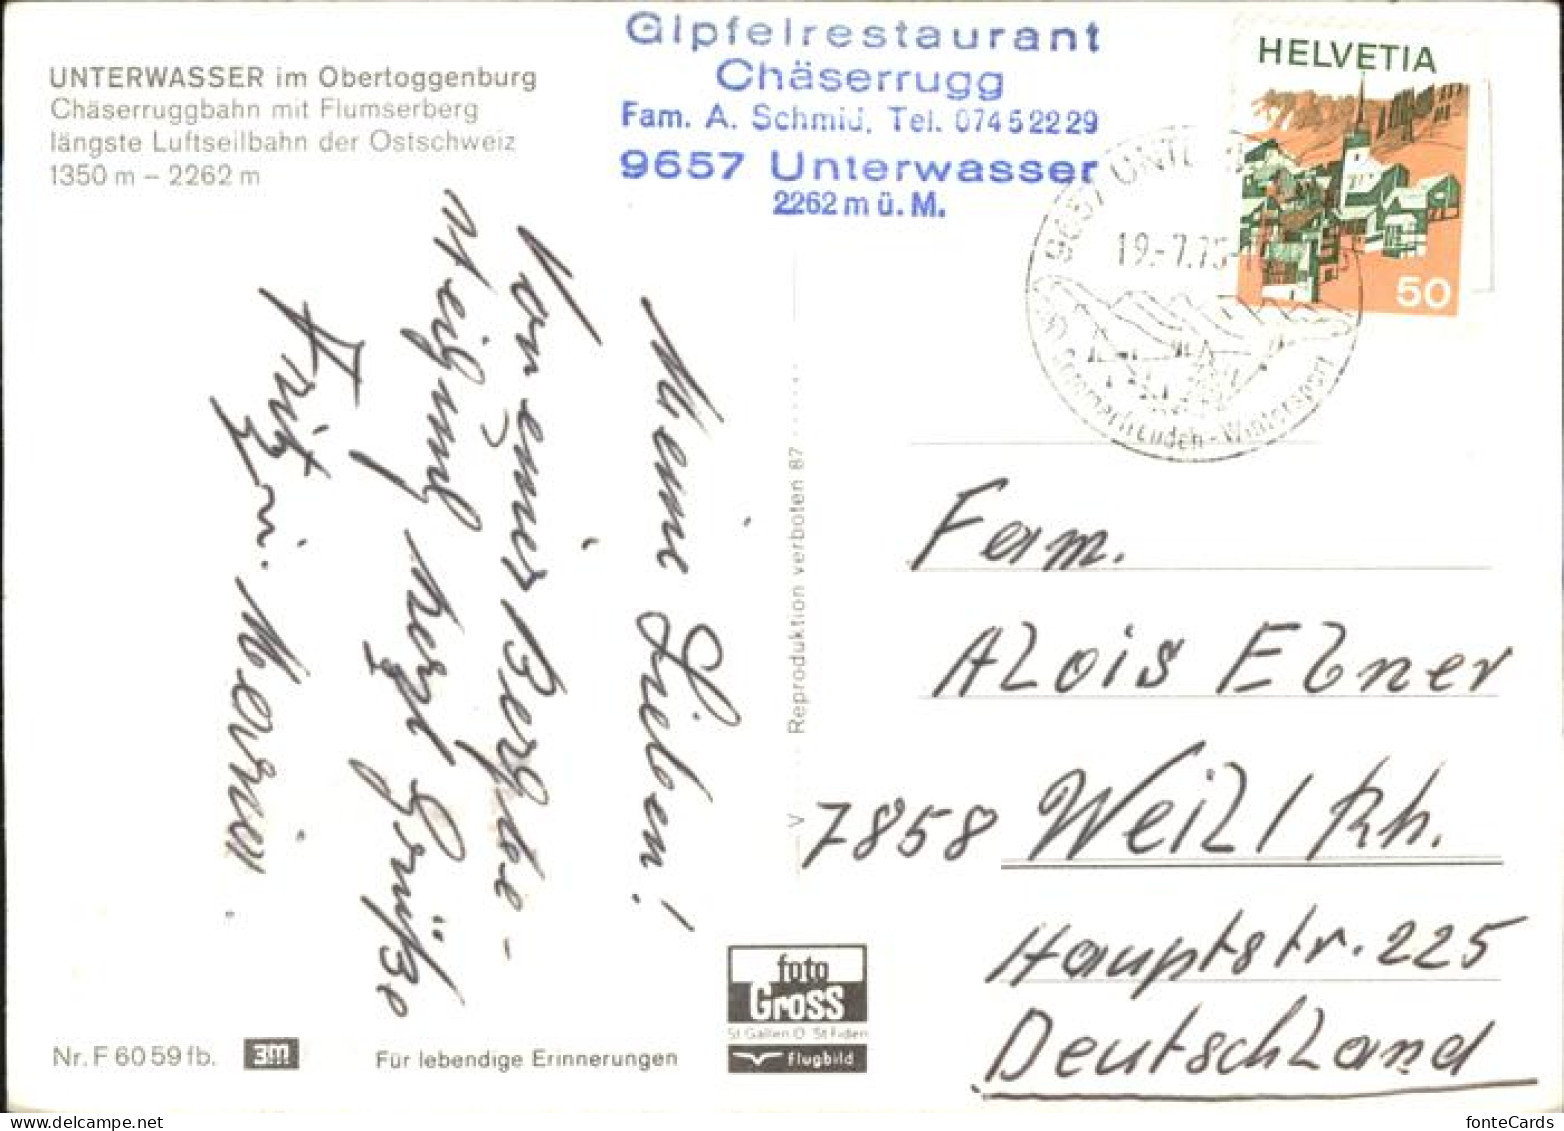 UNTERWASSER im Obertoggenburg
Chäserruggbahn mit Flumserberg
längste Luftseilbahn der Ostschweiz
1350 m – 2262 m
Gipfelrestaurant
Chäserrugg
Fam. A. Schmid, Tel. 074 5 22 29
9657 Unterwasser
2262 m ü. M.
HELVETIA
50
9657 UNT
19.-7.75
Sommerfreuden - Wintersport
Meine Lieben!
Von einer Bergbe-
steigung herzl. Grüße
Fritz
Reproduktion verboten 87
V
Fam.
Alois Ebner
7858 Weil / Rh.
Hauptstr. 225
Deutschland
foto
Gross
St Gallen O St Fiden
flugbild
Nr. F 60 59 fb.
3m
Für lebendige Erinnerungen
fonteCards